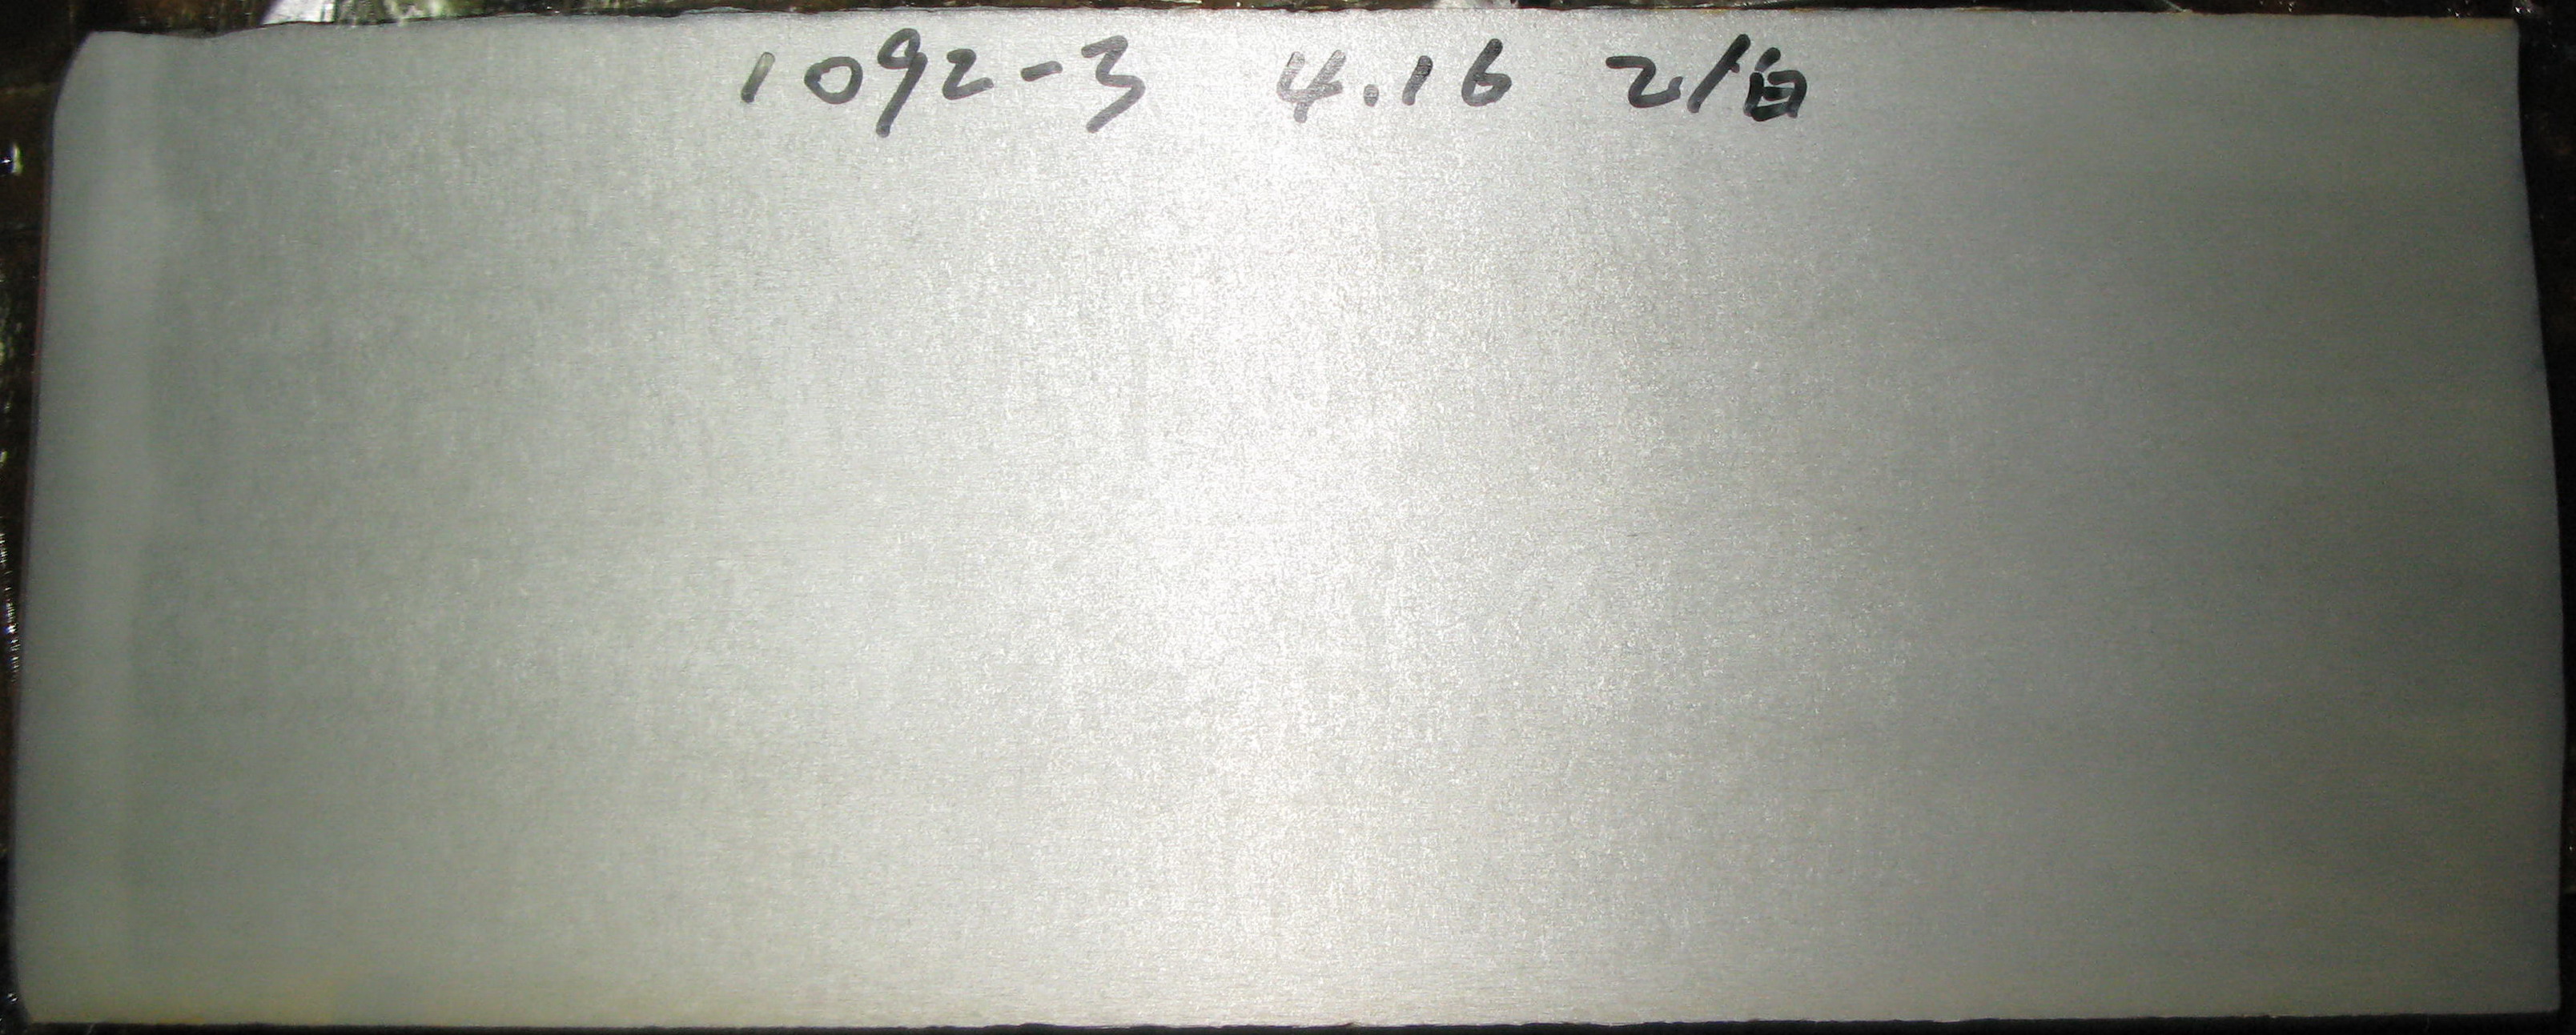 1092-3 4.16 乙/白